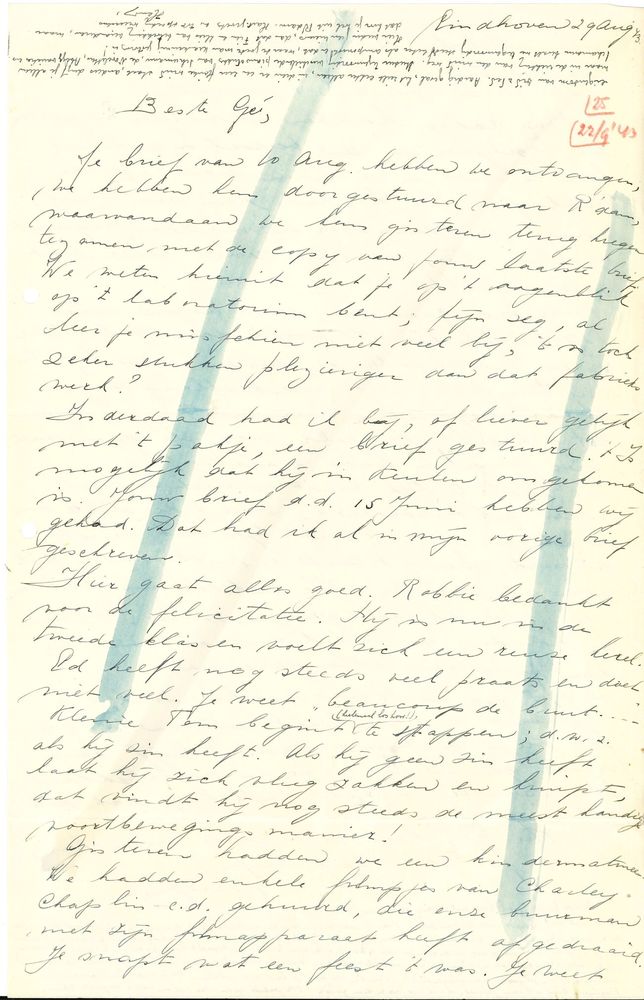 Eindhoven 29 Aug '43
25
(22/9 '43
Beste Gé,
Je brief van 10 Aug. hebben we ontvangen,
we hebben hem doorgestuurd naar R'dam,
waarvandaan we hem gisteren terug kregen
tezamen met de copy van jouw laatste brief.
We weten hieruit dat je op 't oogenblik
op 't laboratorium bent; fijn zeg, al
leer je misschien niet veel bij, 't is toch
zeker stukken plezieriger dan dat fabrieks
werk?
Inderdaad had ik bij, of liever gelijk
met 't pakje, een brief gestuurd. 't Is
mogelijk dat hij in Keulen omgekomen
is. Jouw brief d.d. 15 Juni hebben wij
gehad. Dat had ik al in mijn vorige brief
geschreven.
Hier gaat alles goed. Robbie bedankt
voor de felicitatie. Hij is nu in de
tweede klas en voelt zich een reuze kerel.
Ed heeft nog steeds veel praats en doet
niet veel. Je weet "beaucoup de bruit....
Kleine Tom begint (helemaal los hoor!) te stappen; d.w.z.
als hij zin heeft. Als hij geen zin heeft
laat hij zich vlug zakken en kruipt,
dat vindt hij nog steeds de meest handige
voortbewegings manier!
Gisteren hadden we een kindermatinee
We hadden enkele filmpjes van Charley
Chaplin e.d. gehuurd, die onze buurman
met zijn filmapparaat heeft afgedraaid.
Je snapt wat een feest 't was. Je weet